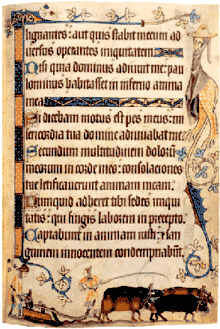 lignantes: aut quis stabit mecum ad
uersus operantes iniquitatem.
Nisi quia dominus adiuuit me: pau
lominus habitasset in inferno anima
mea
Si dicebam motus est pes meus: mi
sericordia tua domine adiuuabat me.
Secundum multitudinem dolorū
meorum in corde meo: consolationes
tue letificauerunt animam meam.
Nunquid adheret tibi sedes iniqui
tatis: qui fingis laborem in precepto.
Captabunt in animam iusti: & san
guinem innocentem condempnabūt.